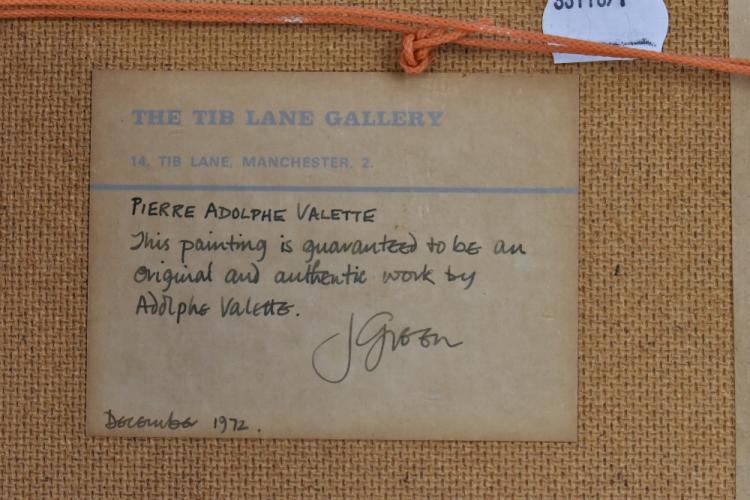 THE TIB LANE GALLERY
14, TIB LANE, MANCHESTER. 2.
PIERRE ADOLPHE VALETTE
This painting is guaranteed to be an
original and authentic work by
Adolphe Valette.
J Green
December 1972.